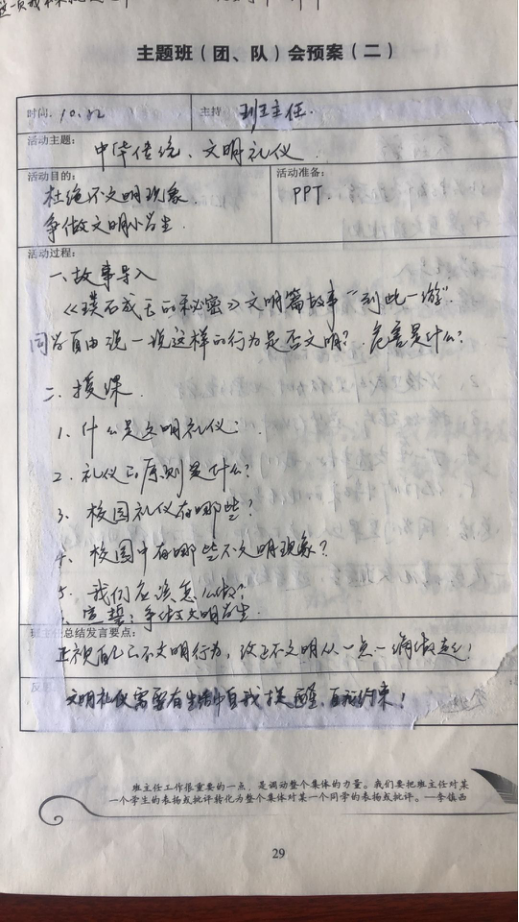 主题班（团、队）会预案（二）
时间：10.22 主持 班主任.
活动主题：
中华传统、文明礼仪
活动目的：
杜绝不文明现象.
争做文明小学生.
活动准备：
PPT.
活动过程：
一、故事导入
《璞石成玉的秘密》文明篇故事“到此一游”.
同学自由说一说这样的行为是否文明？危害是什么？
二、授课
1、什么是文明礼仪：
2、礼仪的原则是什么？
3、校园礼仪有哪些？
4、校园中有哪些不文明现象？
5、我们应该怎么做？
宣誓：争做文明学生.
班主任总结发言要点：
正视自己的不文明行为，改正不文明从一点一滴做起！
文明礼仪需要在生活中自我提醒，自我约束！
班主任工作很重要的一点，是调动整个集体的力量。我们要把班主任对某
一个学生的表扬或批评转化为整个集体对某一个同学的表扬或批评。—李镇西
29